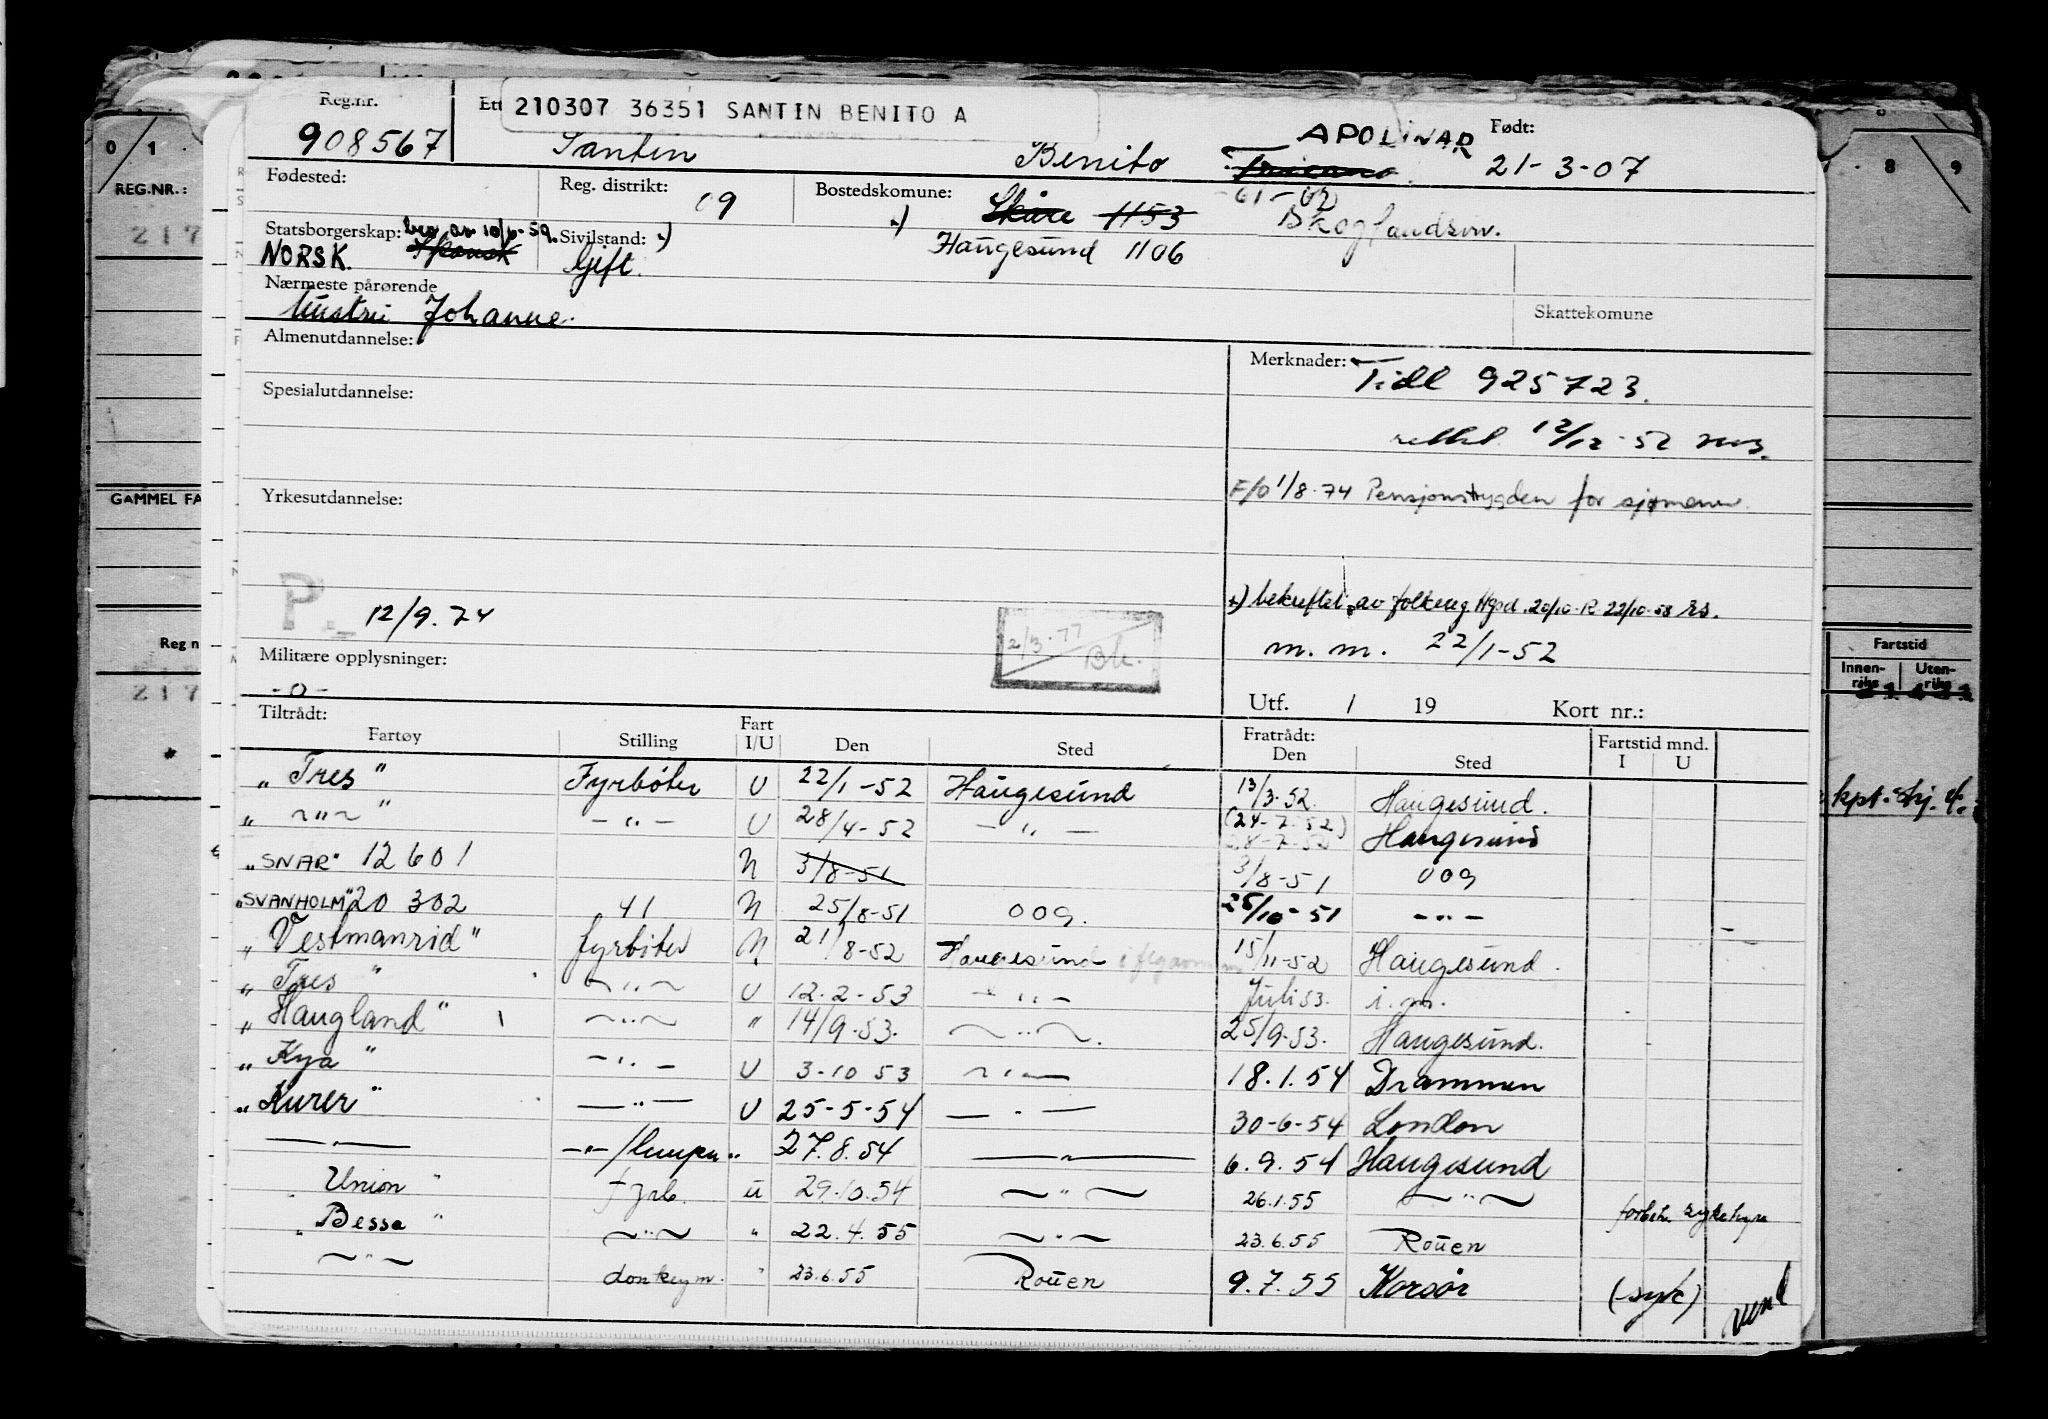 Reg.nr. Ett 210307 36351 SANTIN BENITO A
908567 Santin Benito APOLINAR Født: 21-3-07
Fødested: Reg. distrikt: 09 Bostedskomune: Skåre 1153
Statsborgerskap: Spansk Sivilstand: Haugesund 1106
NORSK. Gift.
Nærmeste pårørende
Hustru Johanne. Skattekomune
Almenutdannelse: Merknader: Tidl 925723.
Spesialutdannelse: 12/12-52
Yrkesutdannelse: F/O 1/8.74 Pensjonstrygden for sjømenn
P. 12/9.74
2/3.77
bekreftet av folkereg. Hgsd. 20/10 22/10-58
Militære opplysninger: m.m. 22/1-52
-0- Utf. / 19 Kort nr.:
Tiltrådt: Fratrådt:
Fartøy Stilling Fart I/U Den Sted Den Sted Fartstid mnd. I U
"Tres" Fyrbøter U 22/1-52 Haugesund 13/3.52. Haugesund.
" ~"~ " -"- U 28/4-52 -"- (24-7-52) 28-7-52 Haugesund
"SNAR" 12601 N 3/8-51 3/8-51 009
"SVANHOLM" 20 302 41 N 25/8-51 009. 25/10-51 -"-
"Vestmanrid" fyrbøter N 21/8-52 Haugesund 15/11-52 Haugesund.
"Tres" ~"~ U 12.2-53 -"- Juli 53. i.m.
"Haugland" ~"~ " 14/9.53. ~"~. 25/9.53. Haugesund.
"Kya" -"- U 3-10 53 ~"- 18.1.54 Drammen
"Kurer" -"- U 25-5-54 -"- 30-6-54 London
-"- -"-/lemper " 27.8.54 -"- 6.9.54 Haugesund
Union " fyrb. U 29.10.54 ~"~ 26.1.55 ~"~
"Bessa" ~"~ " 22.4.55 ~"~ 23.6.55 Rouen
~"~ donkeym. " 23.6.55 Rouen 9.7.55 Korsør (syk) vend
0 1
REG.NR.:
217
GAMMEL FA
Reg n
217
8 9
Fartstid
Innen-riks Uten-riks